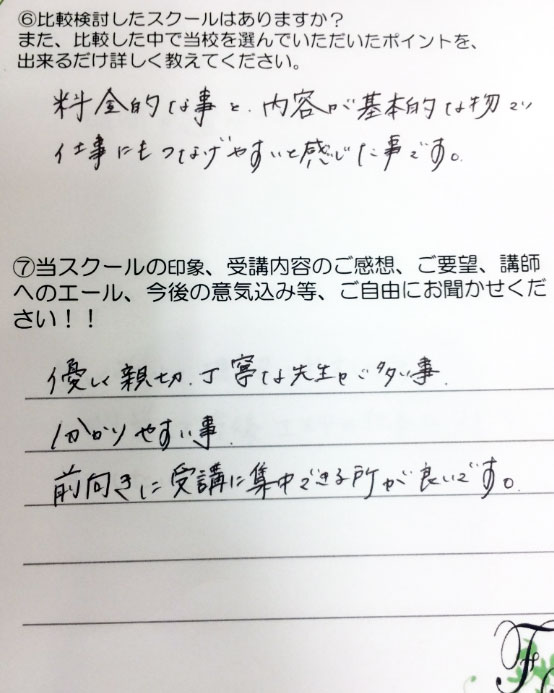 ⑥比較検討したスクールはありますか？
また、比較した中で当校を選んでいただいたポイントを、
出来るだけ詳しく教えてください。
料金的な事と、内容が基本的な物で
仕事にもつなげやすいと感じた事です。
⑦当スクールの印象、受講内容のご感想、ご要望、講師
へのエール、今後の意気込み等、ご自由にお聞かせくだ
さい！！
優しく親切、丁寧な先生が多い事、
わかりやすい事、
前向きに受講に集中できる所が良いです。
F